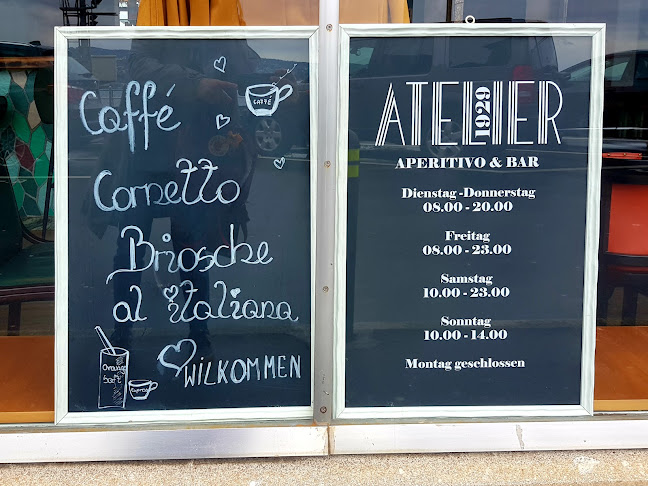 Caffé
CAFFÉ
Cornetto
Briosche
al italiana
Orange
Saft
Espresso
WILKOMMEN
ATELIER
1929
APERITIVO & BAR
Dienstag-Donnerstag
08.00 - 20.00
Freitag
08.00 - 23.00
Samstag
10.00 - 23.00
Sonntag
10.00 - 14.00
Montag geschlossen